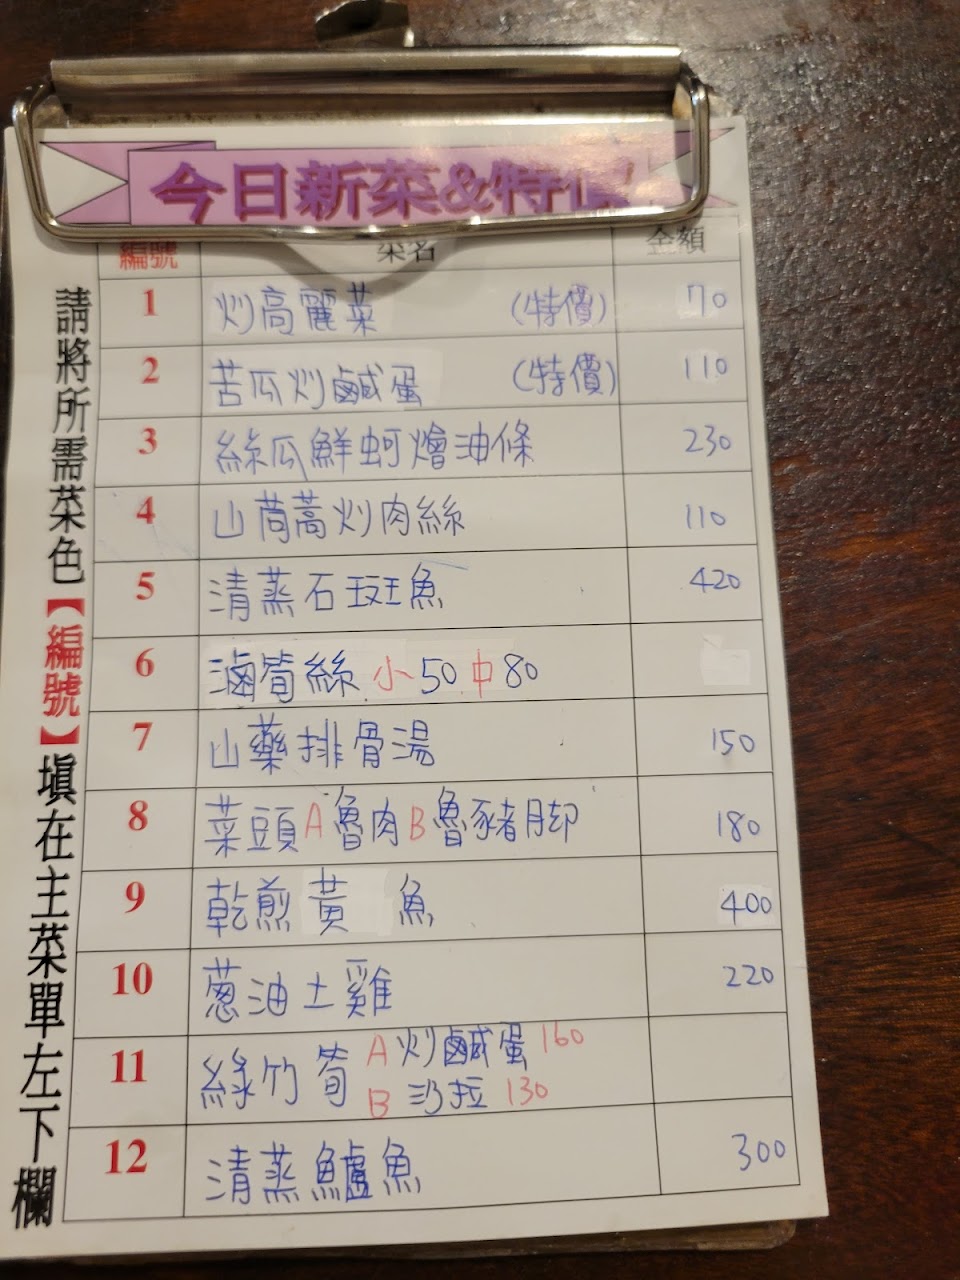 今日新菜&特價
編號 菜名 金額
1 炒高麗菜 (特價) 70
2 苦瓜炒鹹蛋 (特價) 110
3 絲瓜鮮蚵燴油條 230
4 山茼蒿炒肉絲 110
5 清蒸石斑魚 420
6 滷筍絲 小50 中80
7 山藥排骨湯 150
8 菜頭A魯肉B魯豬脚 180
9 乾煎黃魚 400
10 蔥油土雞 220
11 綠竹筍 A 炒鹹蛋 160
B 沙拉 130
12 清蒸鱸魚 300
請將所需菜色【編號】填在主菜單左下欄